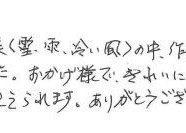 く(雪、雨、冷い風)の中、作
た。おかげ様で、きれいに
えてられます。ありがとうござ